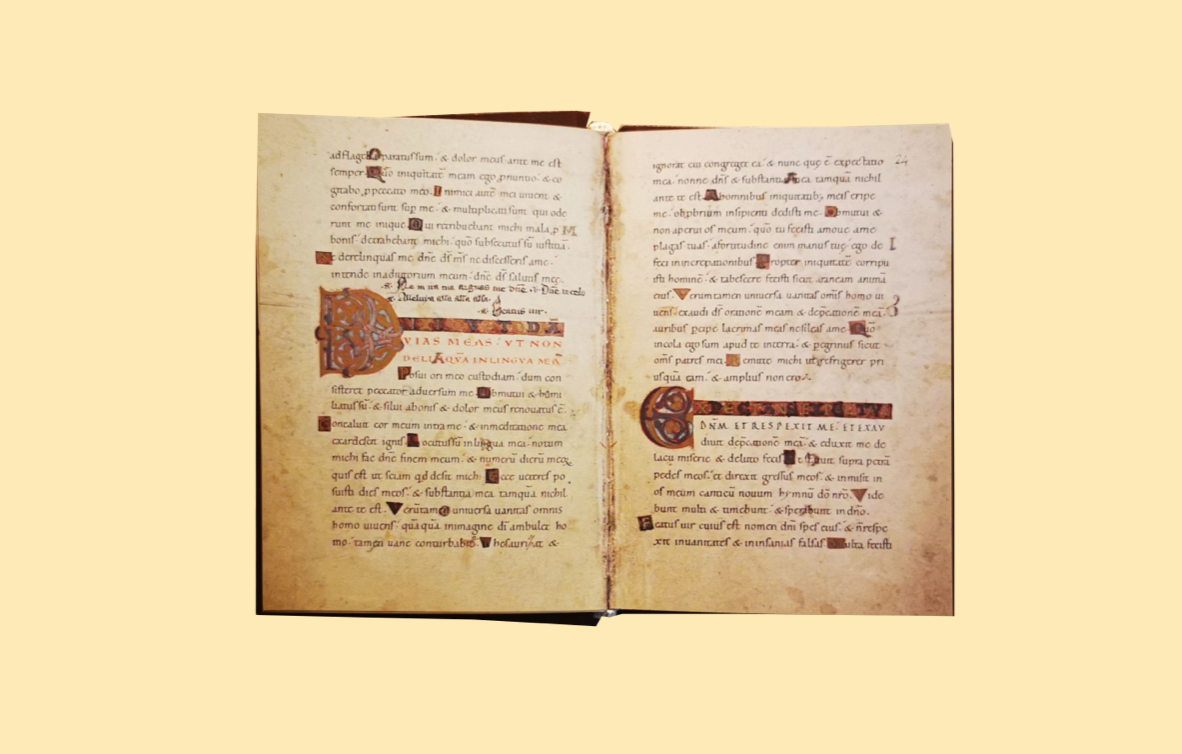 ad flagella paratus sum · & dolor meus ante me est
semper · Quō iniquitatē meam ego p̱nuntio · & co
gitabo ,p peccato meo · Inimici autē mei uiuent &
confortati sunt sup me · & multiplicati sunt qui ode
runt me inique · Qui retribuebant michi mala ,p
bonis detrahebant michi · quō subsecutus sū iustitiā
Ne derelinquas me dn̄e dś mś ne discesseris ame ·
intende inadiutorium meum · dn̄e dś salutis meę ·
Ne in ira tua arguas me dn̄e
Alleluia alla alla alla ·
Beatus uir ·
DIXI CVSTODIĀ
VIAS MEAS · VT NON
DELIAQVA INLINGVA MEĀ
Posui ori meo custodiam · dum con
sisteret peccator aduersum me · Obmutui & humi
liatus sū · & silui abonis & dolor meus renouatus ē ·
Concaluit cor meum intra me · & inmeditatione mea
exardescet ignis · Locutus sū in lingua mea · notum
michi fac dn̄e finem meum · & numerū dierū meoꝝ
quis est ut sciam qd desit michi · Ecce ueteres po
suisti dies meos · & substantia mea tamquā nihil
ante te est · Verūtam uniuersa uanitas omnis
homo uiuens · quāquā inimagine dī ambulet ho
mo · tamen uane conturbabit · Thesaurizat &
24
ignorat cui congreget ea · & nunc quę ē expectatio
mea · nonne dn̄s & substantia mea tamquā nichil
ante te est · Ab omnibus iniquitatib; meis eripe
me · obp̱brium insipienti dedisti me · Obmutui &
non aperui os meum · quō tu fecisti amoue ame
plagas tuas · afortitudine enim manus tuę · ego de
feci inincrepationibus · Propter iniquitatē corripu
isti hominē · & tabescere fecisti sicut araneam animā
eius · Verumtamen uniuersa uanitas om̄is homo ui
uens · exaudi dś orationē meam & dep̱cationē meā
auribus percipe lacrimas meas ne sileas ame · Quō
incola ego sum apud te interra · & peregrinus sicut
om̄s patres mei · Remitte michi ut refrigerer pri
usquā eam · & amplius non ero ·
EXPECTANS EXPECTAVI
DN̄M · ET RESPEXIT ME · ET EXAV
diuit dep̱cationē meā · & eduxit me de
lacu miserię & deluto fecis · Et statuit supra petrā
pedes meos · et direxit gressus meos · & inmisit in
os meum canticū nouum hymnū dō nro · Vide
bunt multi & timebunt · & sperabunt in dn̄o ·
Beatus uir cuius est nomen dn̄i spes eius · & n̄ respe
xit inuanitates & in insanias falsas · Multa fecisti